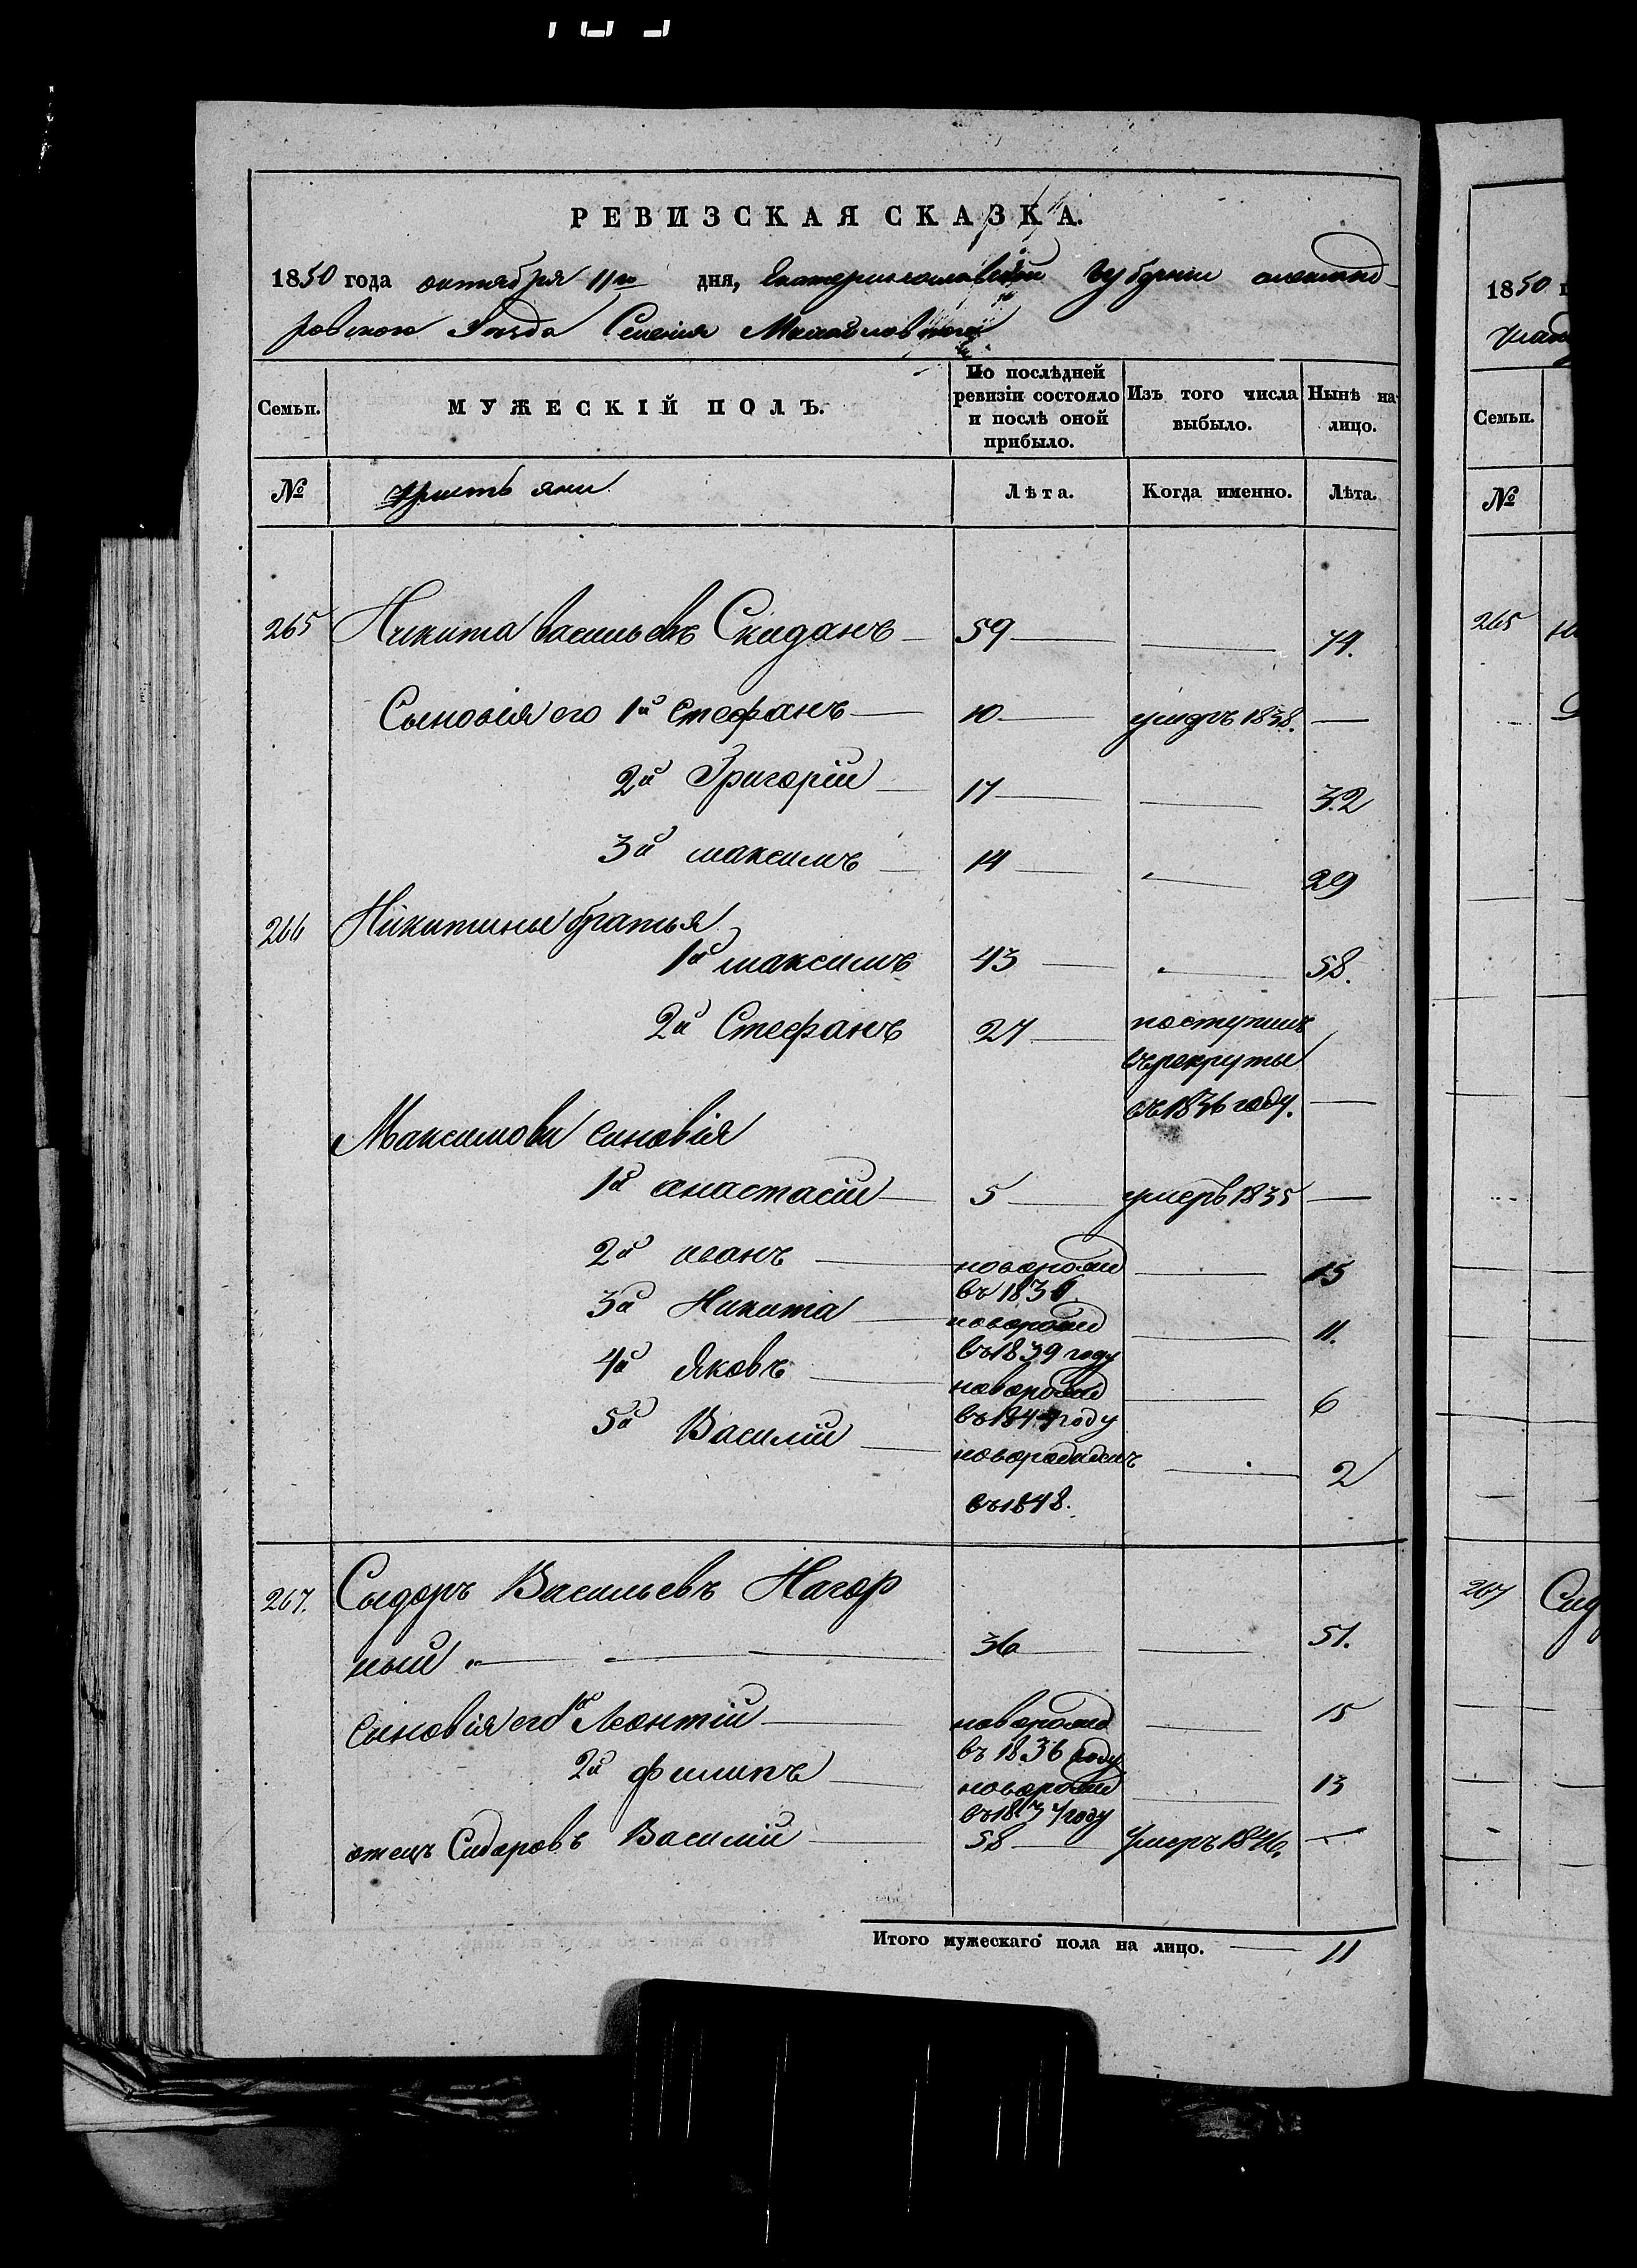 РЕВИЗСКАЯ СКАЗКА.
1850 года октября 11го дня, Екатеринославской губернии александ-
ровскаго Уезда Селения Михайловского
Семьи. МУЖЕСКІЙ ПОЛЪ. По послѣдней ревизіи состояло и послѣ оной прибыло. Изъ того числа выбыло. Нынѣ на лицо.
№ Лѣта. Когда именно. Лѣта.
265 Никита васильевъ Скиданъ 59 74.
Сыновія его 1й Стефанъ 10 1838.
2й Григорій 17 32
3й максимъ 14 29
266 Никитины братья
1й максимъ 43 58.
2й Стефанъ 27 поступилъ
въ рекруты
въ 1836 году.
Максимови синовія
1й анастасій 5 умеръ 1835
2й иванъ новорожд 15
въ 183
3й Никита новорожд 11.
въ 1839 году
4й Яковъ новорожд 6
въ 1844 году
5й Василій новорожденъ 2
въ 1848.
267. Сыдоръ Васильевъ Нагор
ный 36 51.
Сыновія его 1й Леонтій новорожд 15
въ 1836 году
2й филипъ новорожд 13
въ 1837 году
отецъ Сидоровъ Василій 58 Умеръ 1846.
Итого мужескаго пола на лицо. 11
1850
Семьи.
№
265
267 Сид